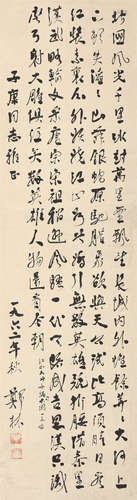 北國風光千里冰封萬里雪飄望長城內外惟餘莽莽大河上
下頓失滔滔山舞銀蛇原馳臘象欲與天公試比高須晴日看
紅裝素裹分外妖嬈江山如此多嬌引無數英雄競折腰惜秦皇
漢武略輸文采唐宗宋祖稍遜風騷一代天驕成吉思汗只識彎
弓射大雕俱往矣數風流人物還看今朝
子庚同志雅正
一九六二年秋 鄭林